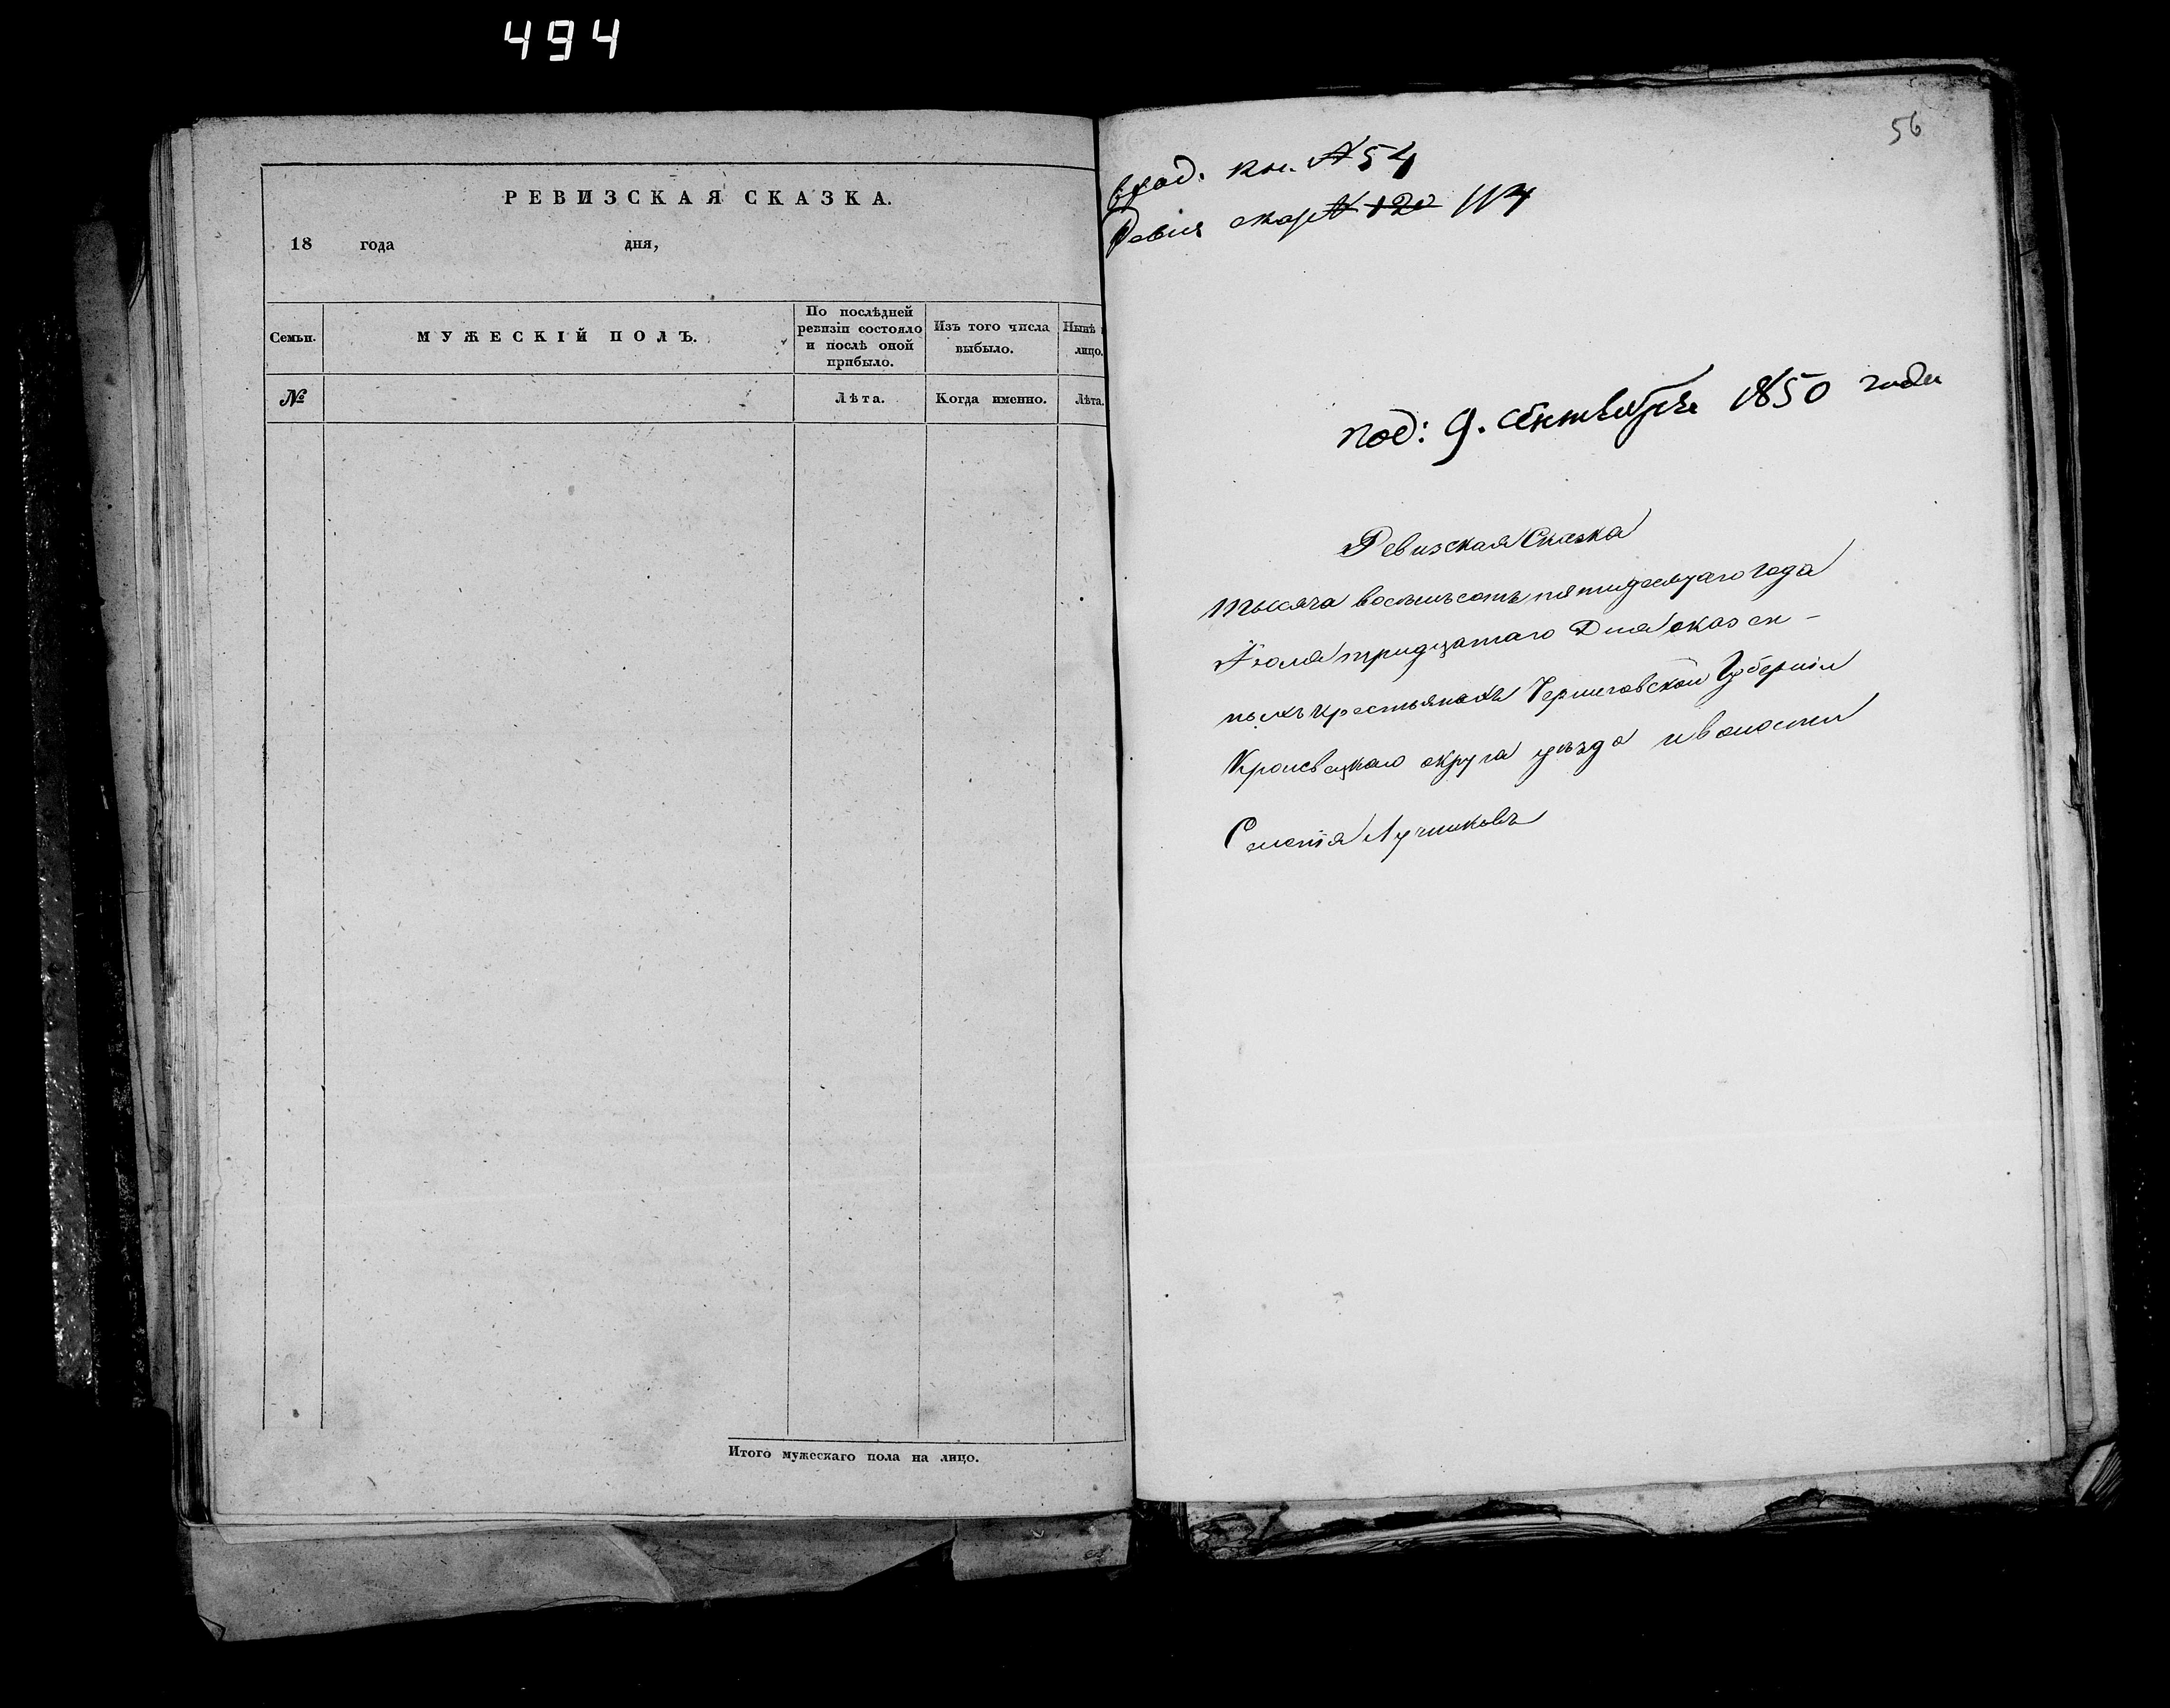 494
РЕВИЗСКАЯ СКАЗКА.
18 года дня,
Семьи.
МУЖЕСКІЙ ПОЛЪ.
По послѣдней ревизіи состояло и послѣ оной прибыло.
Изъ того числа выбыло.
Нынѣ
лицо.
№
Лѣта.
Когда именно.
Лѣта.
Итого мужескаго пола на лицо.
56
вход. кн. № 54
Ревиз сказ № 120 114
под: 9. сентября 1850 года
Ревизская Сказка
Тысяча восемьсотъ пятидесятаго года
Іюля тридцатаго Дня о казен-
ныхъ крестьянахъ Черниговской Губерніи
Кролевецкаго округа уезда и волости
Селенія Лучниковъ